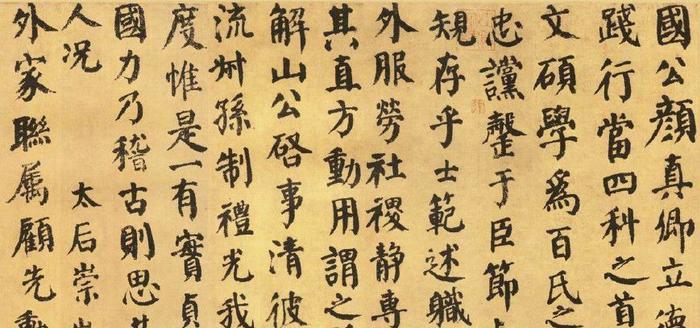 國公顏真卿立德
踐行當四科之首
文碩學爲百氏之
忠讜罄于臣節
規存乎士範述職
外服勞社稷靜專
其直方動用謂之
解山公啓事清彼
流叔孫制禮光我
度惟是一有實貞
國力乃稽古則思其
人况 太后崇
外家聯屬顧先勳